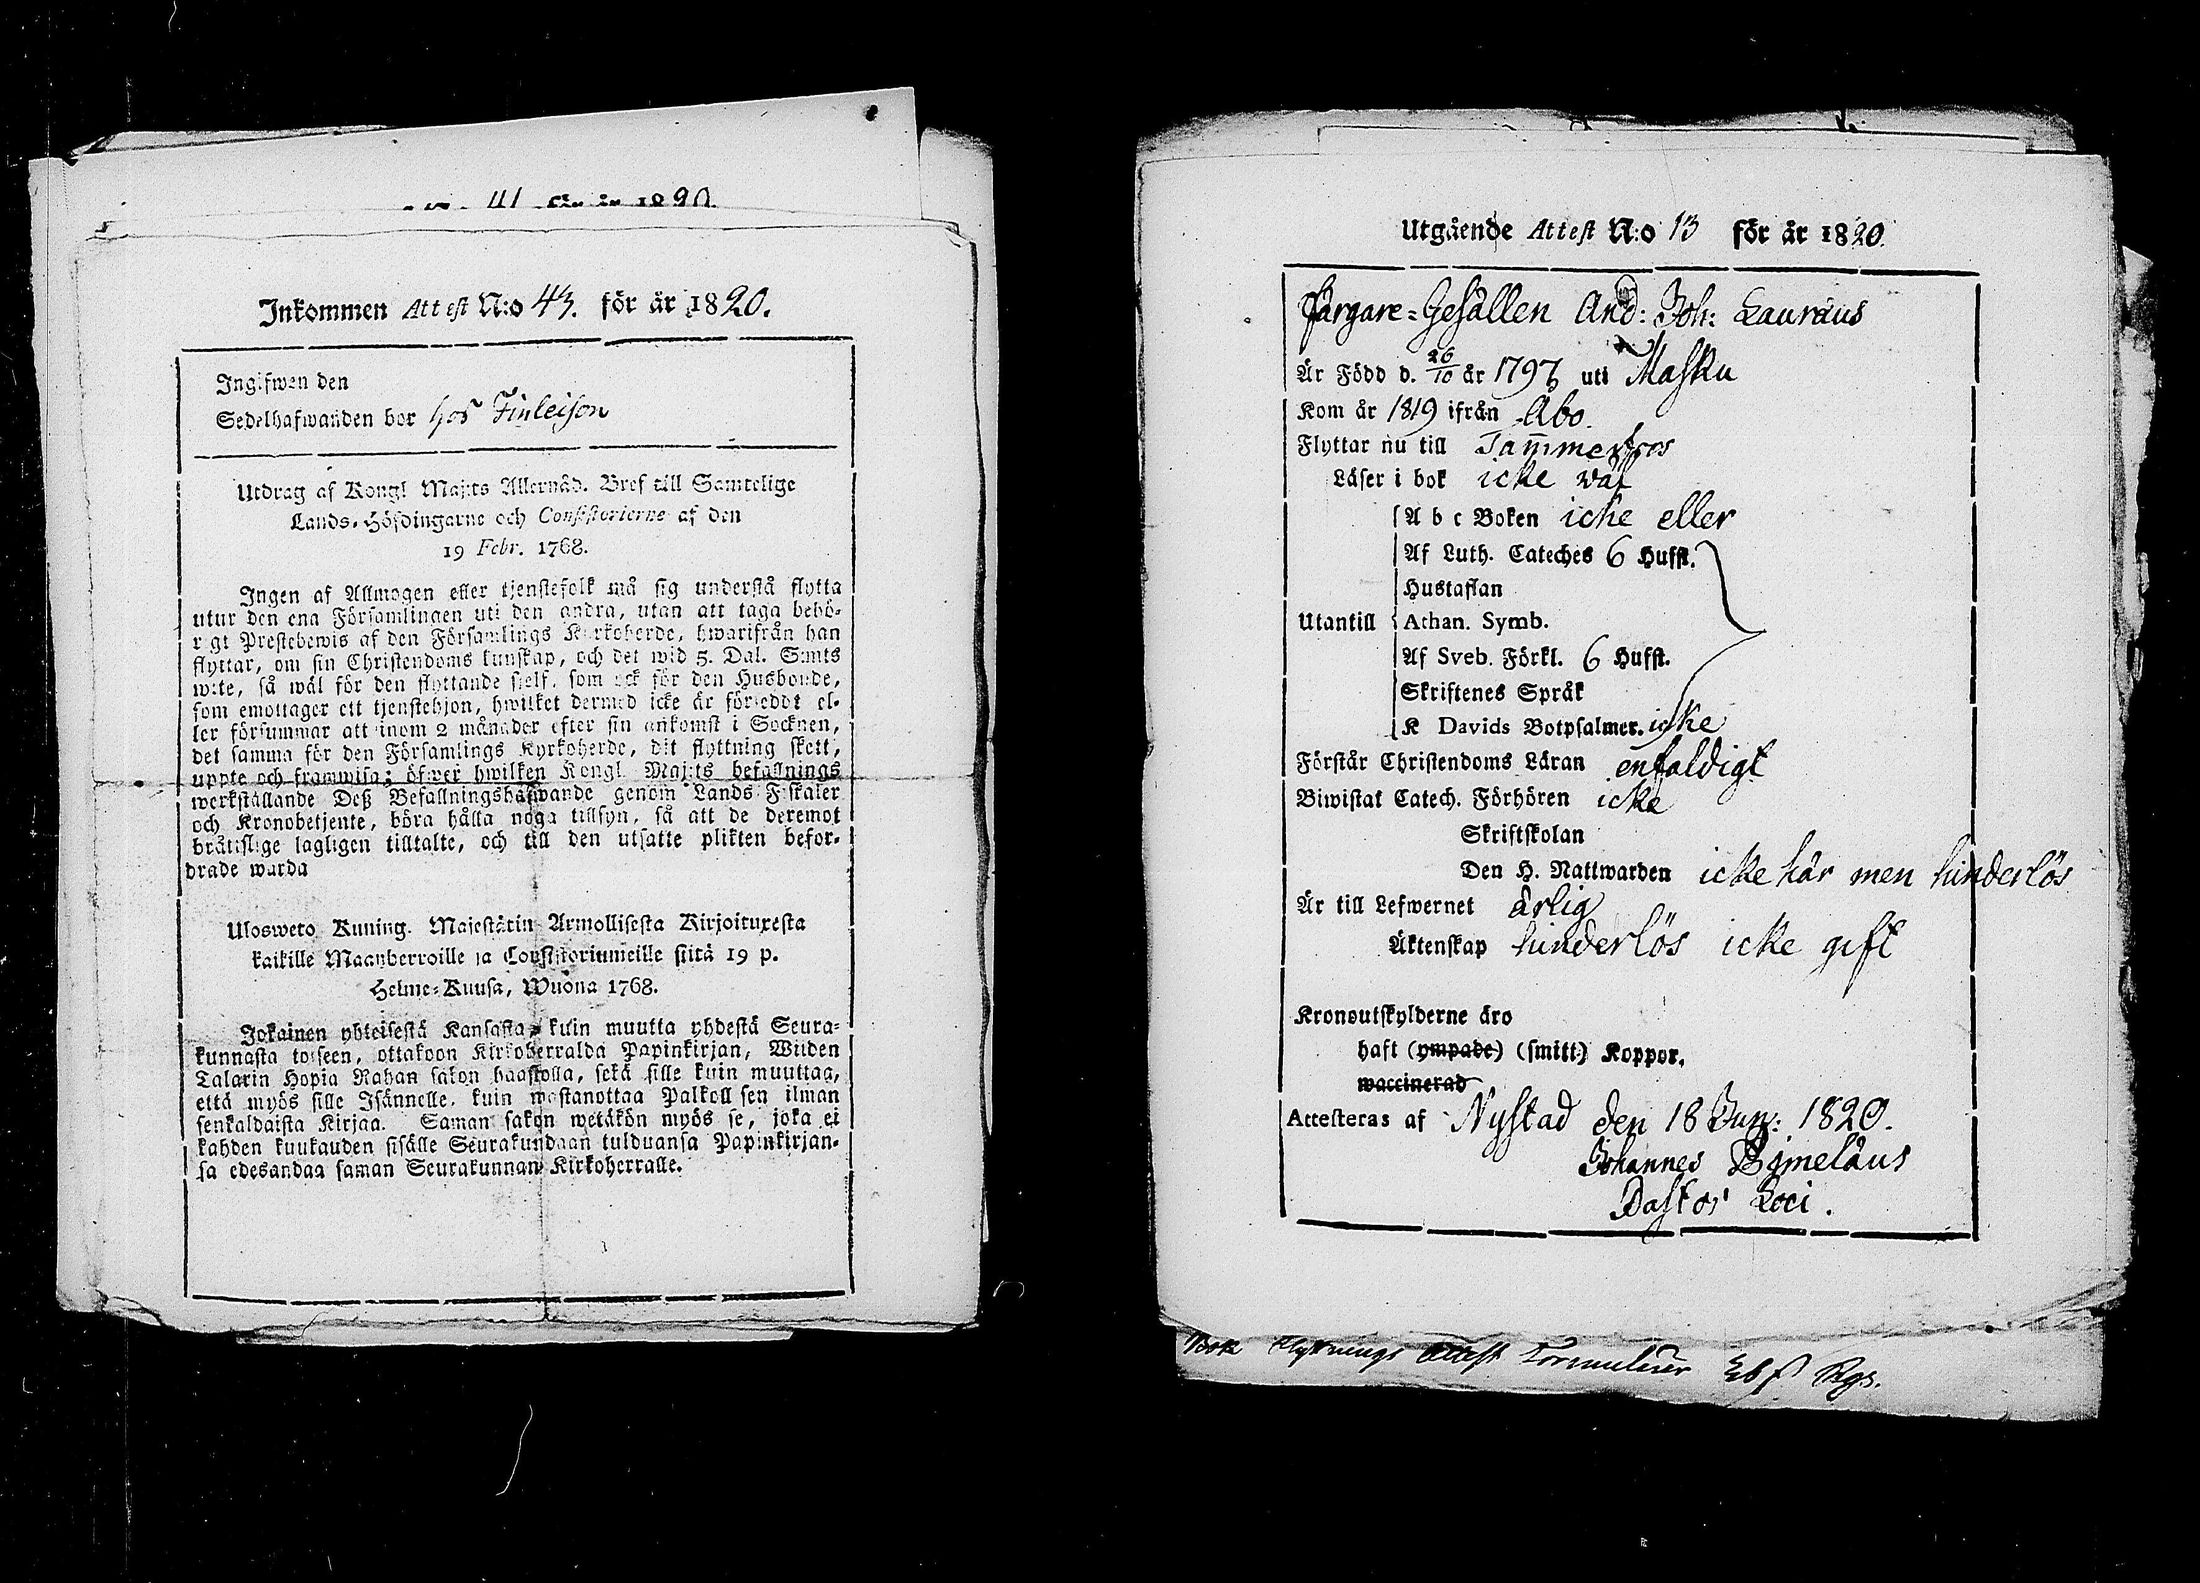 41 för år 1820.
Inkommen Attest N:o 43. för år 1820.
Ingifwen den
Sedelhafwanden bor hos Finleison
Utdrag af Kongl Maj:ts Allernåd. Bref till Samtelige
Lands-Höfdingarne och Consistorierne af den
19 Febr. 1768.
Ingen af Allmogen eller tjenstefolk må sig understå flytta
utur den ena Församlingen uti den andra, utan att taga behö-
rigt Prestebewis af den Församlings Kyrkoherde, hwarifrån han
flyttar, om sin Christendoms kunskap, och det wid 5. Dal. S:mts
wite, så wäl för den flyttande sjelf, som ock för den Husbonde,
som emottager ett tjenstehjon, hwilket dermed icke är försedt el-
ler försummar att inom 2 månader efter sin ankomst i Socknen,
det samma för den Församlings Kyrkoherde, dit flyttning skett,
uppte och framwisa; öfwer hwilken Kongl. Maj:ts befallnings
werkställande Deß Befallningshafwande genom Lands Fiskaler
och Kronobetjente, böra hålla noga tillsyn, så att de deremot
bråtslige lagligen tilltalte, och till den utsatte plikten befor-
drade warda
Ulosweto Kuning. Majestätin Armollisesta Kirjoituxesta
kaikille Maanherroille ja Consistoriumeille siitä 19 p.
Helme-Kuusa, Wuona 1768.
Jokainen yhteisestä Kansasta, kuin muutta yhdestä Seura-
kunnasta toiseen, ottakoon Kirkoherralda Papinkirjan, Wiiden
Talarin Hopia Rahan sakon haastolla, sekä sille kuin muuttaa,
että myös sille Isännelle, kuin wastanottaa Palkollisen ilman
senkaldaista Kirjaa. Saman sakon wetäkön myös se, joka ei
kahden kuukauden sisälle Seurakundaan tulduansa Papinkirjan-
sa edesandaa saman Seurakunnan Kirkoherralle.
Utgående Attest N:o 13 för år 1820.
Färgare-Gesällen And: Joh: Lauræus
Är Född d. 26/10 år 1797 uti Masku
Kom år 1819 ifrån Åbo.
Flyttar nu till Tammerfors
Läser i bok icke wäl
A b c Boken icke eller
Af Luth. Cateches 6 Hufst.
Hustaflan
Utantill Athan. Symb.
Af Sveb. Förkl. 6 Hufst.
Skriftenes Språk
K Davids Botpsalmer. icke
Förstår Christendoms Läran enfaldigt
Biwistat Catech. Förhören icke
Skriftskolan
Den H. Nattwarden icke här men hinderlös
Är till Lefwernet ärlig
Äktenskap hinderlös icke gift
Kronoutskylderne äro
haft (ympade) (smitt:) Koppor.
waccinerad
Attesteras af Nystad den 18 Jun: 1820.
Johannes Bjmelæus
Pastor Loci.
Flyttnings Attest Formulär